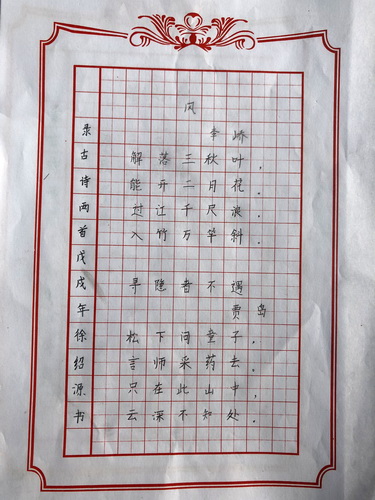 风
李峤
解落三秋叶，
能开二月花。
过江千尺浪，
入竹万竿斜。
寻隐者不遇
贾岛
松下问童子，
言师采药去。
只在此山中，
云深不知处。
录古诗两首戊戌年徐绍源书